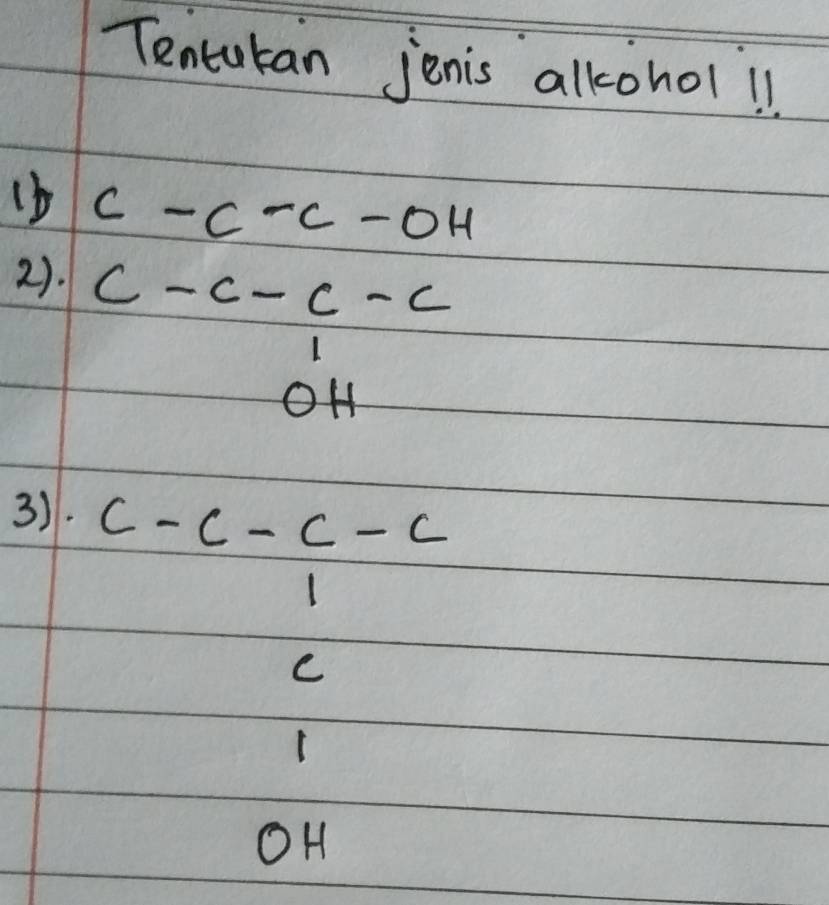 Tentukan jenis alkohol !!
1). C - C - C - OH
2). C - C - C - C
|
OH
3). C - C - C - C
|
C
|
OH